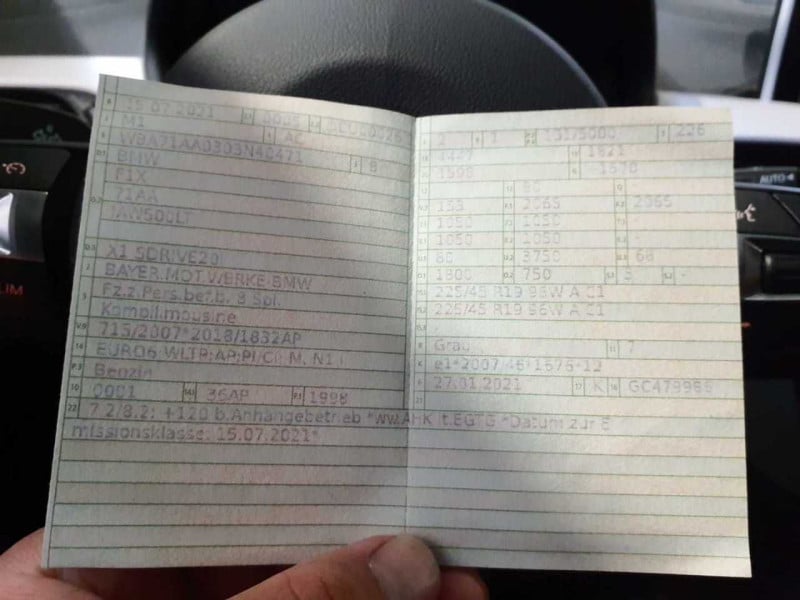 15.07.2021 0005
M1 AC
BMW 8
F1X
71AA
X1 SDRIVE20
BAYER.MOT.WERKE-BMW
Fz.z.Pers.bef.b. 8 Spl.
Kombilimousine
715/2007*2018/1832AP
EURO6
Benzin
0001 36AP 1998
7.2/8.2: +120 b.Anhängebetrieb *Datum zur E
missionsklasse: 15.07.2021*
2 1 131/5000 226
4447 1821
1598
80 -
2065 2065
1050 1050
1050 1050
80 3750 68
1800 750 5 -
225/45 R19 96W A C1
225/45 R19 96W A C1
-
Grau 7
e1*2007/46*1676*12
27.01.2021 K
AUTO
LIM